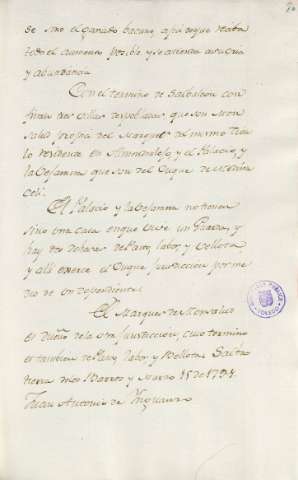 se sino el ganado bacuno, a fin de que reciba
todo el aumento posible y se atienda a su cria
y abundancia
Con el termino de Salbaleon con
finan dos villas despobladas que son Mon
salud propia del Marques del mismo titu
lo residente en Almendralejo, y el Palacio, y
la Dejanina que son del Duque de Medina
Celi.
El Palacio y la Dejanina no tienen
sino una casa en que vive un Guarda, y
hay dos dehesas de Pasto, labor, y vellota
y alli exerce el Duque jurisdiccion por me
dio de un dependiente.
El Marques de Monsalud
es dueño de la otra jurisdiccion, cuio termino
es tambien de Pasto, labor y Vellota. Salva
tierra de los Barros y Marzo 15 de 1794
Juan Antonio de Ynguanzo